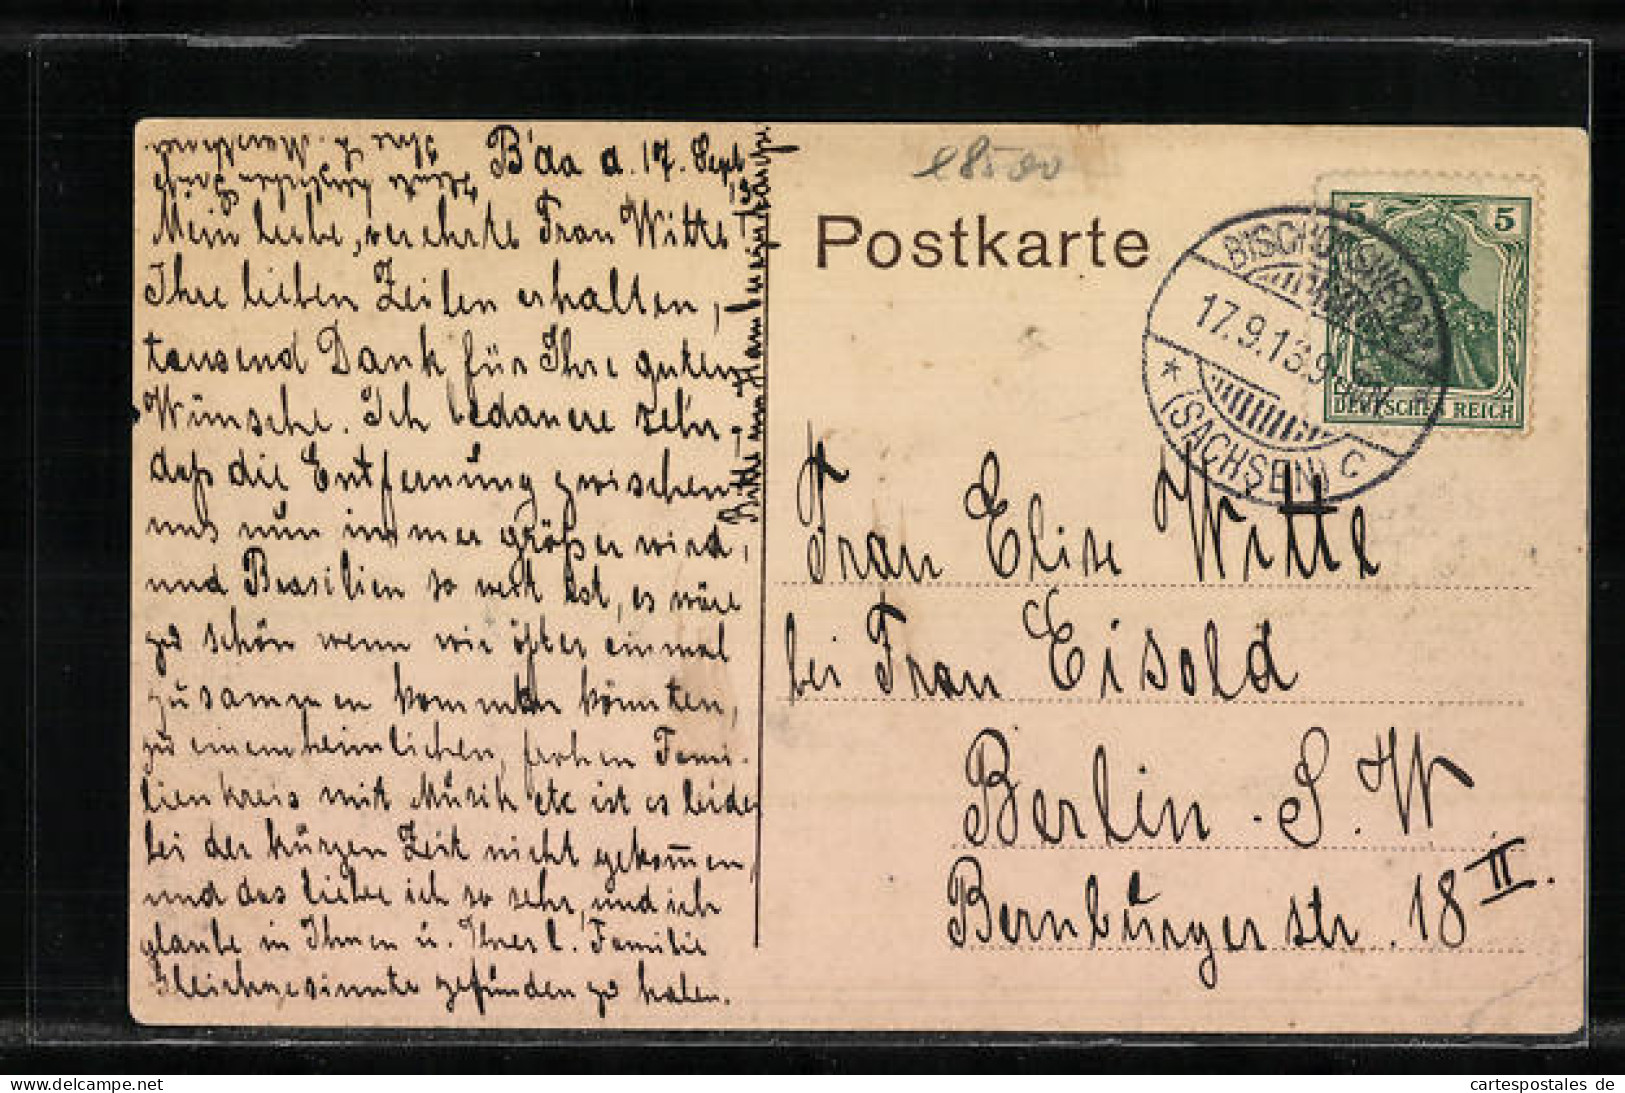 B'da d. 17. Sept.
Mein liebe, verehrte Frau Witte!
Ihre lieben Zeilen erhalten,
tausend Dank für Ihre guten
Wünsche. Ich bedauere sehr,
daß die Entfernung zwischen
uns nun immer größer wird,
und Brasilien so weit ist, es wäre
zu schön wenn wir öfter einmal
zusammen kommen könnten,
zu einem heimlichen, frohen Fami-
lienkreis mit Musik etc ist es leider
bei der kurzen Zeit nicht gekom̅en,
und das liebe ich so sehr, und ich
glaube in Ihnen u. Ihrer l. Familie
Gleichgesinnte gefunden zu haben.
Bitte um
28500
Postkarte
5 5
DEUTSCHES REICH
BISCHOFSWERDA
17.9.13.9
* (SACHSEN) C *
Frau Elise Witte
bei Frau Eisold
Berlin. S. W
Bernburgerstr. 18 II.
www.delcampe.net
cartespostales de